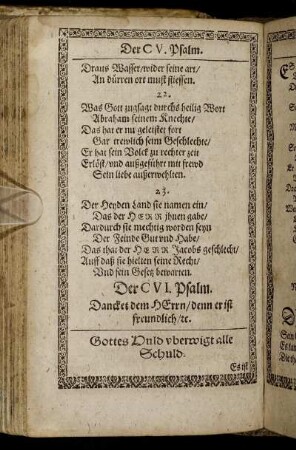 Der C V. Psalm.
Draus Wasser/wider seine art/
An dürren ort must fliessen.
22.
Was Gott zugsagt durchs heilig Wort
Abraham seinem Knechte/
Das hat er nu geleistet fort
Gar trewlich seim Geschlechte/
Er hat sein Volck zu rechter zeit
Erlöst/und außgeführt mit frewd
Sein liebe außerwehlten.
23.
Der Heyden Land sie namen ein/
Das der HERR jhnen gabe/
Dardurch sie mechtig worden seyn
Der Feinde Gut vnd Habe/
Das that der HERR Jacobs geschlecht/
Auff daß sie hielten seine Recht/
Vnd sein Gesetz bewarten.
Der C V I. Psalm.
Dancket dem HErrn/denn er ist
freundlich/ec.
Gottes Huld vberwigt alle
Schuld.
Es ist